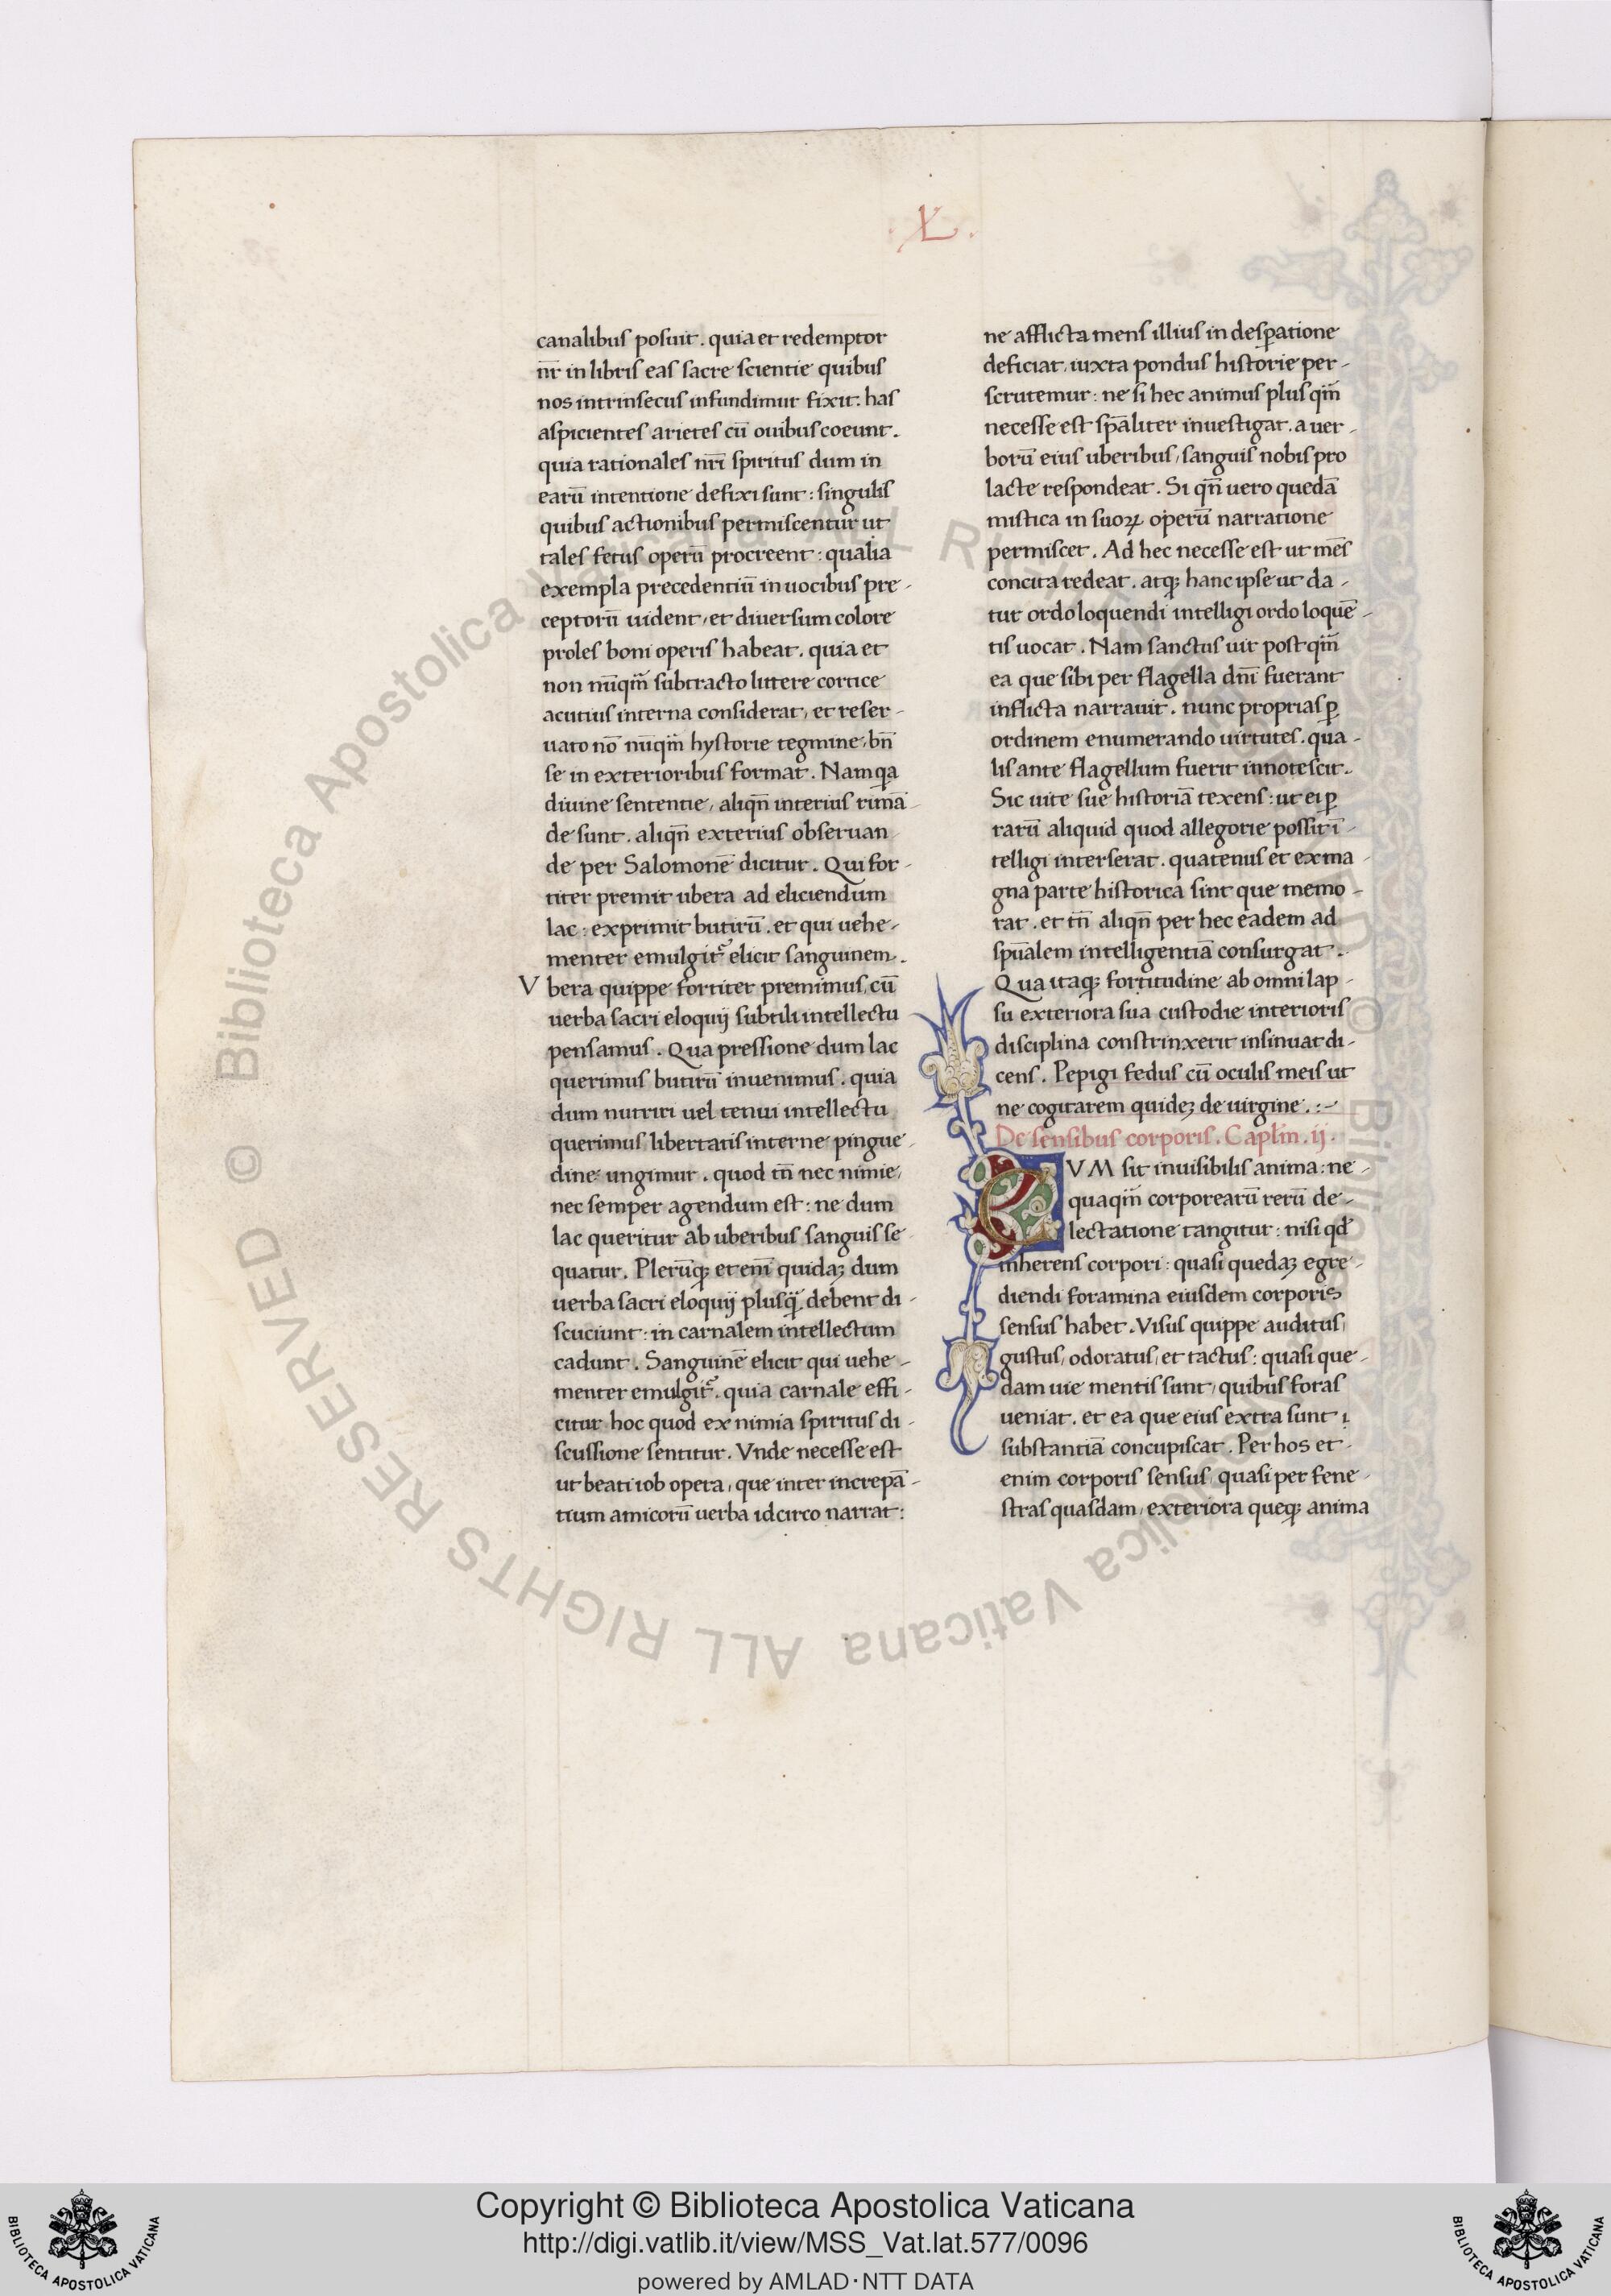 .L.
canalibus posuit. quia et redemptor
nr̄ in libris eas sacre scientie quibus
nos intrinsecus infundimur fixit. has
aspicientes arietes cū ouibus coeunt.
quia rationales nrī spiritus dum in
earū intentione defixi sunt: singulis
quibus actionibus permiscentur ut
tales fetus operū procreent: qualia
exempla precedentiū in uocibus pre-
ceptorū uident, et diuersum colore
proles boni operis habeat. quia et
non nūqm̄ subtracto littere cortice
acutius interna considerat, et reser-
uato nō nūqm̄ hystorie tegmine, bn̄
se in exterioribus format. Nam qa
diuine sententie, aliqn̄ interius rimā-
de sunt. aliqn̄ exterius obseruan-
de per Salomonē dicitur. Qui for-
titer premit ubera ad eliciendum
lac: exprimit butirū. et qui uehe-
menter emulgit elicit sanguinem.
Vbera quippe fortiter premimus, cū
uerba sacri eloquij subtili intellectu
pensamus. Qua pressione dum lac
querimus butirū inuenimus. quia
dum nutriri uel tenui intellectu
querimus, libertatis interne pingue-
dine ungimur. quod tn̄ nec nimie,
nec semper agendum est: ne dum
lac queritur ab uberibus sanguis se-
quatur. Plerūqꝫ et enī quidaꝫ dum
uerba sacri eloquij plusq̄ debent di-
scuciunt: in carnalem intellectum
cadunt. Sanguinē elicit qui uehe-
menter emulgit. quia carnale effi-
citur hoc quod ex nimia spiritus di-
scussione sentitur. Vnde necesse est
ut beati iob opera, que inter increpā-
tium amicorū uerba idcirco narrat:
ne afflicta mens illius in desꝑatione
deficiat, iuxta pondus historie per-
scrutemur: ne si hec animus plus qm̄
necesse est spāliter inuestigat. a uer-
borū eius uberibus, sanguis nobis pro
lacte respondeat. Si qn̄ uero quedā
mistica in suoꝝ operū narratione
permiscet. Ad hec necesse est ut mēs
concita redeat. atqꝫ hanc ipse ut da-
tur ordo loquendi intelligi ordo loquē-
tis uocat. Nam sanctus uir postqm̄
ea que sibi per flagella dnī fuerant
inflicta narrauit. nunc proprias ꝑ
ordinem enumerando uirtutes. qua-
lis ante flagellum fuerit innotescit.
Sic uite sue historiā texens: ut ei ꝑ
rarū aliquid quod allegorie possit ī-
telligi interserat. quatenus et ex ma-
gna parte historica sint que memo-
rat. et tn̄ aliqn̄ per hec eadem ad
spūalem intelligentiā consurgat.
Qua itaqꝫ fortitudine ab omni lap-
su exteriora sua custodie interioris
disciplina constrinxerit insinuat di-
cens. Pepigi fedus cū oculis meis ut
ne cogitarem quideꝫ de uirgine.:-
De sensibus corporis. Caplm̄. ij.
CVM sit inuisibilis anima: ne-
quaqm̄ corporearū rerū de-
lectatione tangitur: nisi qd
inherens corpori: quasi quedaꝫ egre-
diendi foramina eiusdem corporis
sensus habet. Visus quippe auditus,
gustus, odoratus, et tactus: quasi que-
dam uie mentis sunt, quibus foras
ueniat. et ea que eius extra sunt i
substantiā concupiscat. Per hos et-
enim corporis sensus, quasi per fene-
stras quasdam, exteriora queqꝫ anima
© Biblioteca Apostolica Vaticana ALL RIGHTS RESERVED © Biblioteca Apostolica Vaticana ALL RIGHTS RESERVED
Copyright © Biblioteca Apostolica Vaticana
http://digi.vatlib.it/view/MSS_Vat.lat.577/0096
powered by AMLAD·NTT DATA
BIBLIOTECA APOSTOLICA VATICANA
BIBLIOTECA APOSTOLICA VATICANA